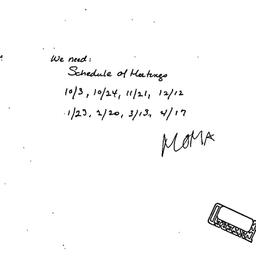 We need:
Schedule of Meetings
10/3, 10/24, 11/21, 12/12
1/23, 2/20, 3/13, 4/17
MOMA